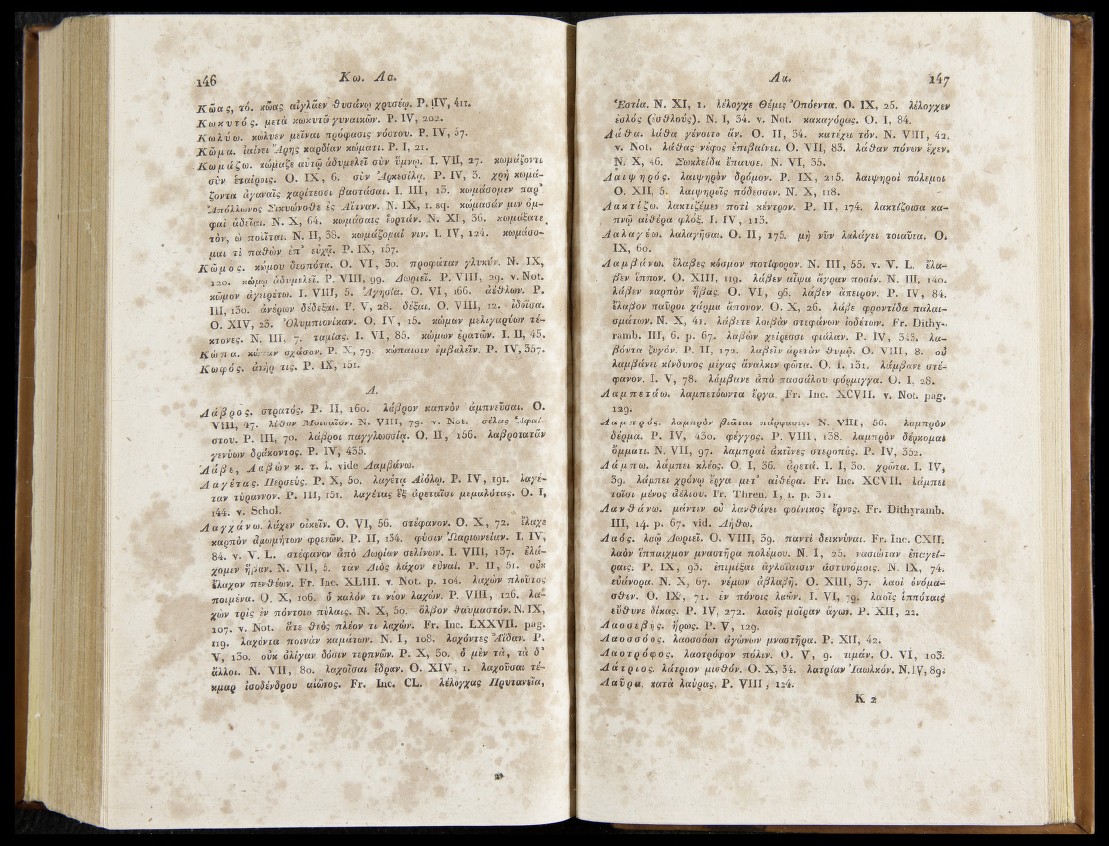 146 Κω. Λα.
Κῶας, τό. κῶας αἰγλᾶεν θυσάνῳ χρυσέῳ. P. IV, 411.
Κωκυτός. μετὰ κωκυτῷ γυναικῶν. P. IV, 202.
Κωλύω. κωλυεν μεῖναι πρόφασις νόστου. P. IV, 57.
Κῶμα. ἰαίνει Ἄρης καρδίαν κώματι. P. I, 21.
Κωμάζω. κώμαζε αὐτῷ ἁδυμελεῖ σὺν ὕμνῳ. I. VII, 27. κωμάζοντι
σὺν ἑταίροις. O. IX, 6. σὺν Ἀρκεσίλᾳ. P. IV, 3. χρὴ κωμά-
ζοντα ἀγαναῖς χαρίτεσσι βαστάσαι. I. III, 13. κωμάσομεν παρ᾽
Ἀπόλλωνος Σικυώνοθε ἐς Αἴτναν. N. IX, 1. sq. κώμασάν μιν ὀμ-
φαὶ ἁδεῖαι. N. X, 64. κωμάσαις ἑορτάν. N. XI, 36. κωμάξατε
τόν, ὦ πολῖται. N. II, 38. κωμάζομαί νιν. I. IV, 124. κωμάσο-
μαι τι παθὼν ἐπ᾽ εὐχᾷ. P. IX, 157.
Κῶμος. κώμου δεσπότα. O. VI, 30. προφάταν γλυκύν. N. IX,
120. κώμῳ ἁδυμελεῖ. P. VIII, 99. Δωριεῖ. P. VIII, 29. v. Not.
κῶμον ἀγειρέτω. I. VIII, 5. Ἁγησία. O. VI, 166. ἀέθλων. P.
III, 130. ἀνέρων δέδεξαι. P. V, 28. δέξαι. O. VIII, 12. ἰδοῖσα.
O. XIV, 23. Ὀλυμπιονίκαν. O. IV, 15. κώμων μελιγαρύων τέ-
κτονες. N. III, 7. ταμίας. I. VI, 85. κώμων ἐρατῶν. I. II, 45.
Κώπα. κώπαν σχάσον. P. X, 79. κώπαισιν ἐμβαλεῖν. P. IV, 357.
Κωφός. ἀνήρ τις. P. IX, 151.
Λ.
Λάβρος. στρατός. P. II, 160. λάβρον καπνὸν ἀμπνεῦσαι. O.
VIII, 47. λίθον Μοισαῖον. N. VIII, 79. v. Not. σέλας Ἁφαί-
στου. P. III, 70. λάβροι παγγλωσσίᾳ. O. II, 156. λαβροτατᾶν
γενύων δράκοντος. P. IV, 435.
Λάβε, Λαβὼν κ. τ. λ. vide Λαμβάνω.
Λαγέτας. Περσεύς. P. X, 50. λαγέτᾳ Αἰόλῳ. P. IV, 191. λαγέ-
ταν τύραννον. P. III, 151. λαγέτας ἓξ ἀρεταῖσι μεμαλότας. O. I,
144. v. Schol.
Λαγχάνω. λάχεν οἰκεῖν. O. VI, 56. στέφανον. O. X, 72. ἔλαχε
καρπὸν ἀμωμήτων φρενῶν. P. II, 134. φύσιν Ὠαριωνείαν. I. IV,
84. v. V. L. στέφανον ἀπὸ Δωρίων σελίνων. I. VIII, 137. ἐλά-
χομεν ἥβαν. N. VII, 5. τὰν Διὸς λάχον εὐναί. P. II, 51. οὐκ
ἔλαχον πενθέων. Fr. Inc. XLIII. v. Not. p. 104. λαχὼν πλοῦτος
ποιμένα. O. X, 106. ὁ καλόν τι νέον λαχών. P. VIII, 126. λα-
χὼν τρὶς ἐν πόντοιο πύλαις. N. X, 50. ὄλβον θαυμαστόν. N. IX,
107. v. Not. ἅτε θεὸς πλέον τι λαχών. Fr. Inc. LXXVII. pag.
119. λαχόντα ποινὰν καμάτων. N. I, 108. λαχόντες Ἀΐδαν. P.
V, 130. οὐκ ὀλίγαν δόσιν τερπνῶν. P. X, 30. ὁ μὲν τά, τὰ δ᾽
ἄλλοι. N. VII, 80. λαχοῖσαι ἕδραν. O. XIV, 1. λαχοῦσαι τέ-
κμαρ ἰσοδένδρου αἰῶνος. Fr. Inc. CL. λέλογχας Πρυτανεῖα,
Λα. 147
Ἑστία. N. XI, 1. λέλογχε Θέμις Ὀπόεντα. O. IX, 25. λέλογχεν
ἐσλός (ἐσθλούς). N. I, 34. v. Not. κακαγόρως. O. I, 84.
Λάθα. λάθα γένοιτο ἄν. O. II, 34. κατέχει τόν. N. VIII, 42.
v. Not. λάθας νέφος ἐπιβαίνει. O. VII, 83. λάθαν πόνων ἔχεν.
N. X, 46. Σωκλείδα ἔπαυσε. N. VI, 35.
Λαιψηρός. λαιψηρὸν δρόμον. P. IX, 215. λαιψηροὶ πόλεμοι
O. XII, 5. λαιψηροῖς πόδεσσιν. N. X, 118.
Λακτίζω. λακτιζέμεν ποτὶ κέντρον. P. II, 174. λακτίζοισα κα-
πνῷ αἰθέρα φλόξ. I. IV, 113.
Λαλαγέω. λαλαγῆσαι. O. II, 175. μὴ νῦν λαλάγει τοιαῦτα. O.
IX, 60.
Λαμβάνω. ἔλαβες κόσμον ποτίφορον. N. III, 55. v. V. L. ἔλα-
βεν ἵππον. O. XIII, 119. λάβεν αἶψα ἄγραν ποσίν. N. III, 140.
λάβεν καρπὸν ἥβας. O. VI, 96. λάβεν ἄπειρον. P. IV, 84.
ἔλαβον παῦροι χάρμα ἄπονον. O. X, 26. λάβε φροντίδα παλαι-
σμάτων. N. X, 41. λάβετε λοιβᾶν στεφάνων ἰοδέτων. Fr. Dithy-
ramb. III, 6. p. 67. λαβὼν χείρεσσι φιάλαν. P. IV, 343. λα-
βόντα ζυγόν. P. II, 172. λαβεῖν ἀρετὰν θυμῷ. O. VIII, 8. οὐ
λαμβάνει κίνδυνος μέγας ἄναλκιν φῶτα. O. I, 131. λάμβανε στέ-
φανον. I. V, 78. λάμβανε ἀπὸ πασσάλου φόρμιγγα. O. I, 28.
Λαμπετάω. λαμπετόωντα ἔργα. Fr. Inc. XCVII. v. Not. pag.
129.
Λαμπρός. λαμπρὸν βιᾶται πάρφασις. N. VIII, 56. λαμπρὸν
δέρμα. P. IV, 430. φέγγος. P. VIII, 138. λαμπρὸν δέρκομαι
ὄμματι. N. VII, 97. λαμπραὶ ἀκτῖνες στεροπᾶς. P. IV, 352.
Λάμπω. λάμπει κλέος. O. I, 36. ἀρετά. I. I, 30. χρῶτα. I. IV,
39. λάμπει χρόνῳ ἔργα μετ᾽ αἰθέρα. Fr. Inc. XCVII. λάμπει
τοῖσι μένος ἀελίου. Fr. Thren. I, 1. p. 31.
Λανθάνω. μάντιν οὐ λανθάνει φοίνικος ἔρνος. Fr. Dithyramb.
III, 14. p. 67. vid. Λήθω.
Λαός. λαῷ Δωριεῖ. O. VIII, 39. παντὶ δεικνύναι. Fr. Inc. CXII.
λαὸν ἵππαιχμον μναστῆρα πολέμου. N. I, 25. νασιώταν ἐπαγεί-
ραις. P. IX, 93. ἐπιμίξαι ἀγλαΐαισιν ἀστυνόμοις. N. IX, 74.
εὐάνορα. N. X, 67. νέμων ἀβλαβῆ. O. XIII, 37. λαοὶ ὀνόμα-
σθεν. O. IX, 71. ἐν πόνοις λαῶν. I. VI, 79. λαοῖς ἱππόταις
εὔθυνε δίκας. P. IV, 272. λαοῖς μοῖραν ἄγων. P. XII, 22.
Λαοσεβής. ἥρως. P. V, 129.
Λαοσσόος. λαοσσόων ἀγώνων μναστῆρα. P. XII, 42.
Λαοτρόφος. λαοτρόφον πόλιν. O. V, 9. τιμάν. O. VI, 103.
Λάτριος. λάτριον μισθόν. O. X, 34. λατρίαν Ἰαωλκόν. N. IV, 89.
Λαῦρα. κατὰ λαύρας. P. VIII, 124.
K 2